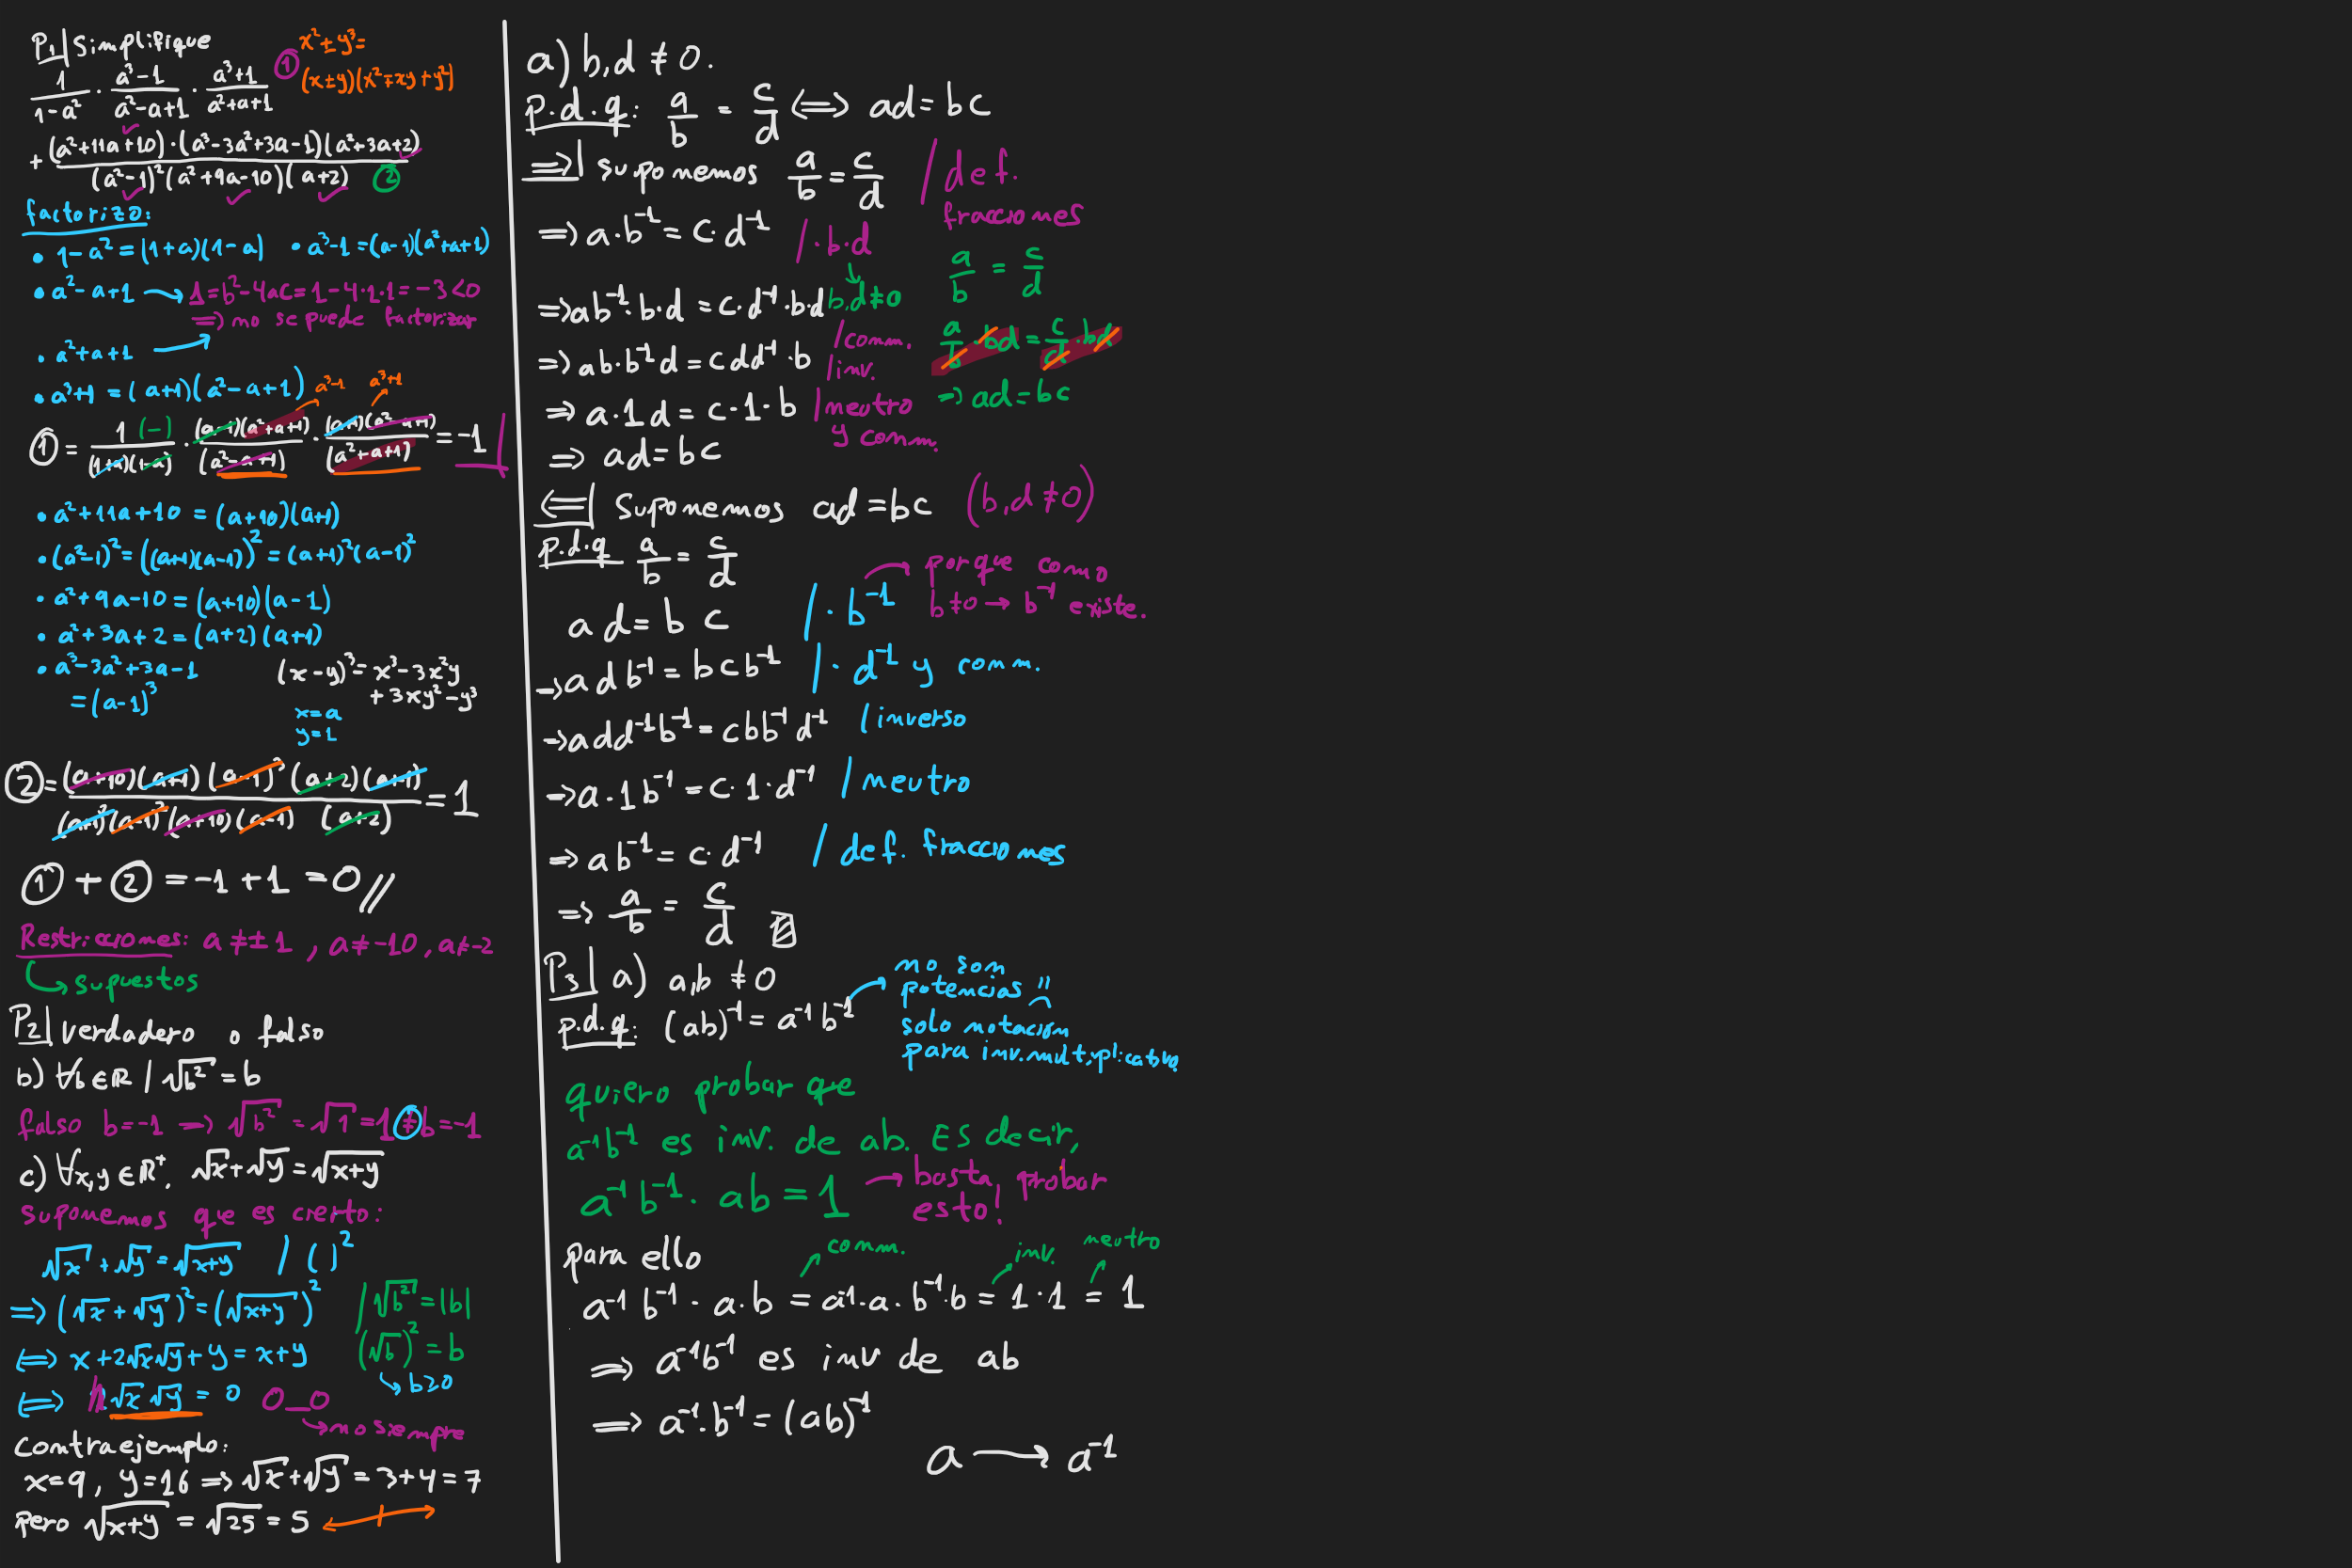 P1| Simplifique
1/(1-a²) · (a³-1)/(a²-a+1) · (a³+1)/(a²+a+1) ①
x³±y³=
(x±y)(x²∓xy+y²)
+ (a²+11a+10)·(a³-3a²+3a-1)(a²+3a+2) / (a²-1)²(a²+9a-10)(a+2) ②
factorizo:
• 1-a² = (1+a)(1-a) • a³-1 = (a-1)(a²+a+1)
• a²-a+1 → Δ=b²-4ac=1-4·1·1=-3<0
⇒ no se puede factorizar
• a²+a+1 →
• a³+1 = (a+1)(a²-a+1)
a³-1 a³+1
① = 1 (-)/(1+a)(1-a) · (a-1)(a²+a+1)/(a²-a+1) · (a+1)(a²-a+1)/(a²+a+1) = -1
• a²+11a+10 = (a+10)(a+1)
• (a²-1)² = ((a+1)(a-1))² = (a+1)²(a-1)²
• a²+9a-10 = (a+10)(a-1)
• a²+3a+2 = (a+2)(a+1)
• a³-3a²+3a-1
= (a-1)³
(x-y)³ = x³-3x²y
+3xy²-y³
x=a
y=1
② = (a+10)(a+1)(a-1)³(a+2)(a+1) / (a+1)²(a-1)²(a+10)(a-1)(a+2) = 1
① + ② = -1+1 = 0 //
Restricciones: a≠±1, a≠-10, a≠-2
↳ supuestos
P2| Verdadero o falso
b) ∀b∈ℝ / √b² = b
falso b=-1 ⇒ √b² = √1 = 1 ≠ b=-1
c) ∀x,y ∈ℝ⁺. √x+√y = √x+y
suponemos que es cierto:
√x + √y = √x+y / ( )²
⇒ (√x + √y)² = (√x+y)²
/ √b² = |b|
⇔ x+2√x√y+y = x+y
(√b)² = b
↳ b≥0
⇔ 2√x√y = 0 0_0
→ no siempre
Contraejemplo:
x=9, y=16 ⇒ √x+√y = 3+4=7
Pero √x+y = √25 = 5
a) b,d ≠ 0.
p.d.q: a/b = c/d ⇔ ad=bc
⇒| suponemos a/b = c/d / def.
fracciones
⇒ a·b⁻¹ = c·d⁻¹ /·b·d
b,d≠0
⇒ ab⁻¹·b·d = c·d⁻¹·b·d
/comm.
⇒ ab·b⁻¹d = cdd⁻¹·b /inv.
⇒ a·1d = c·1·b /neutro
y comm.
⇒ ad=bc
a/b = c/d
a/b·bd = c/d·bd
⇒ ad=bc
⇐| Suponemos ad=bc (b,d≠0)
p.d.q a/b = c/d
ad = bc /·b⁻¹ → porque como
b≠0 → b⁻¹ existe.
⇒ adb⁻¹ = bcb⁻¹ /·d⁻¹ y comm.
⇒ add⁻¹b⁻¹ = cbb⁻¹d⁻¹ /inverso
⇒ a·1b⁻¹ = c·1·d⁻¹ /neutro
⇒ ab⁻¹ = c·d⁻¹ / def. fracciones
⇒ a/b = c/d
P3| a) a,b ≠ 0
p.d.q: (ab)⁻¹ = a⁻¹b⁻¹
no son
potencias
solo notación
para inv. multiplicativo
quiero probar que
a⁻¹b⁻¹ es inv. de ab. Es decir,
a⁻¹b⁻¹·ab = 1 → basta probar
esto!
para ello
comm. inv. neutro
a⁻¹b⁻¹·a·b = a⁻¹·a·b⁻¹·b = 1·1 = 1
⇒ a⁻¹b⁻¹ es inv de ab
⇒ a⁻¹·b⁻¹ = (ab)⁻¹
a → a⁻¹